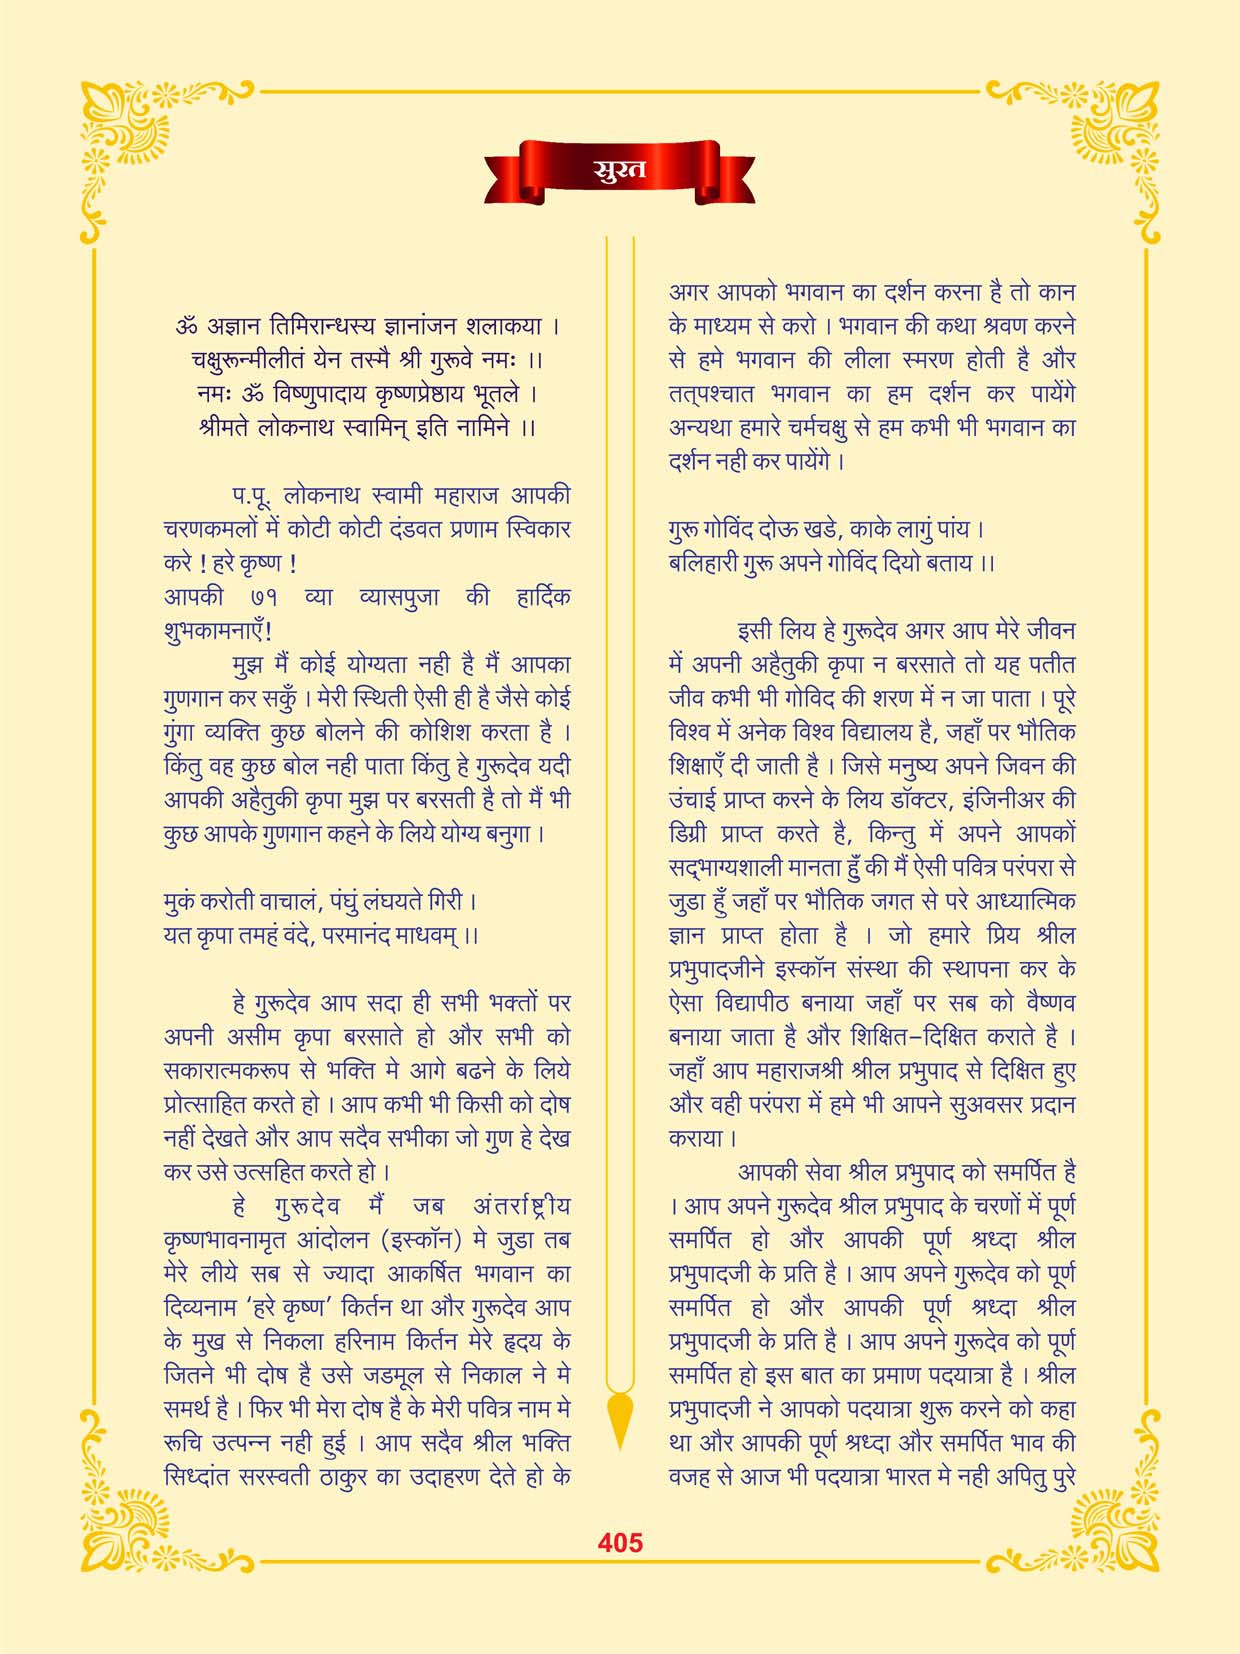 सुरत
ॐ अज्ञान तिमिरान्धस्य ज्ञानांजन शलाकया ।
चक्षुरून्मीलीतं येन तस्मै श्री गुरूवे नमः ।।
नमः ॐ विष्णुपादाय कृष्णप्रेष्ठाय भूतले ।
श्रीमते लोकनाथ स्वामिन् इति नामिने ।।
प.पू. लोकनाथ स्वामी महाराज आपकी
चरणकमलों में कोटी कोटी दंडवत प्रणाम स्विकार
करे ! हरे कृष्ण !
आपकी ७१ व्या व्यासपुजा की हार्दिक
शुभकामनाएँ!
मुझ मैं कोई योग्यता नही है मैं आपका
गुणगान कर सकुँ । मेरी स्थिती ऐसी ही है जैसे कोई
गुंगा व्यक्ति कुछ बोलने की कोशिश करता है ।
किंतु वह कुछ बोल नही पाता किंतु हे गुरूदेव यदी
आपकी अहैतुकी कृपा मुझ पर बरसती है तो मैं भी
कुछ आपके गुणगान कहने के लिये योग्य बनुगा ।
मुकं करोती वाचालं, पंघुं लंघयते गिरी ।
यत कृपा तमहं वंदे, परमानंद माधवम् ।।
हे गुरूदेव आप सदा ही सभी भक्तों पर
अपनी असीम कृपा बरसाते हो और सभी को
सकारात्मकरूप से भक्ति मे आगे बढने के लिये
प्रोत्साहित करते हो । आप कभी भी किसी को दोष
नहीं देखते और आप सदैव सभीका जो गुण हे देख
कर उसे उत्सहित करते हो ।
हे गुरूदेव मैं जब अंतर्राष्ट्रीय
कृष्णभावनामृत आंदोलन (इस्कॉन) मे जुडा तब
मेरे लीये सब से ज्यादा आकर्षित भगवान का
दिव्यनाम ‘हरे कृष्ण’ किर्तन था और गुरूदेव आप
के मुख से निकला हरिनाम किर्तन मेरे हृदय के
जितने भी दोष है उसे जडमूल से निकाल ने मे
समर्थ है । फिर भी मेरा दोष है के मेरी पवित्र नाम मे
रूचि उत्पन्न नही हुई । आप सदैव श्रील भक्ति
सिध्दांत सरस्वती ठाकुर का उदाहरण देते हो के
अगर आपको भगवान का दर्शन करना है तो कान
के माध्यम से करो । भगवान की कथा श्रवण करने
से हमे भगवान की लीला स्मरण होती है और
तत्पश्चात भगवान का हम दर्शन कर पायेंगे
अन्यथा हमारे चर्मचक्षु से हम कभी भी भगवान का
दर्शन नही कर पायेंगे ।
गुरू गोविंद दोऊ खडे, काके लागुं पांय ।
बलिहारी गुरू अपने गोविंद दियो बताय ।।
इसी लिय हे गुरूदेव अगर आप मेरे जीवन
में अपनी अहैतुकी कृपा न बरसाते तो यह पतीत
जीव कभी भी गोविद की शरण में न जा पाता । पूरे
विश्व में अनेक विश्व विद्यालय है, जहाँ पर भौतिक
शिक्षाएँ दी जाती है । जिसे मनुष्य अपने जिवन की
उंचाई प्राप्त करने के लिय डॉक्टर, इंजिनीअर की
डिग्री प्राप्त करते है, किन्तु में अपने आपकों
सद्भाग्यशाली मानता हुँ की मैं ऐसी पवित्र परंपरा से
जुडा हुँ जहाँ पर भौतिक जगत से परे आध्यात्मिक
ज्ञान प्राप्त होता है । जो हमारे प्रिय श्रील
प्रभुपादजीने इस्कॉन संस्था की स्थापना कर के
ऐसा विद्यापीठ बनाया जहाँ पर सब को वैष्णव
बनाया जाता है और शिक्षित-दिक्षित कराते है ।
जहाँ आप महाराजश्री श्रील प्रभुपाद से दिक्षित हुए
और वही परंपरा में हमे भी आपने सुअवसर प्रदान
कराया ।
आपकी सेवा श्रील प्रभुपाद को समर्पित है
। आप अपने गुरूदेव श्रील प्रभुपाद के चरणों में पूर्ण
समर्पित हो और आपकी पूर्ण श्रध्दा श्रील
प्रभुपादजी के प्रति है । आप अपने गुरूदेव को पूर्ण
समर्पित हो और आपकी पूर्ण श्रध्दा श्रील
प्रभुपादजी के प्रति है । आप अपने गुरूदेव को पूर्ण
समर्पित हो इस बात का प्रमाण पदयात्रा है । श्रील
प्रभुपादजी ने आपको पदयात्रा शुरू करने को कहा
था और आपकी पूर्ण श्रध्दा और समर्पित भाव की
वजह से आज भी पदयात्रा भारत मे नही अपितु पुरे
405